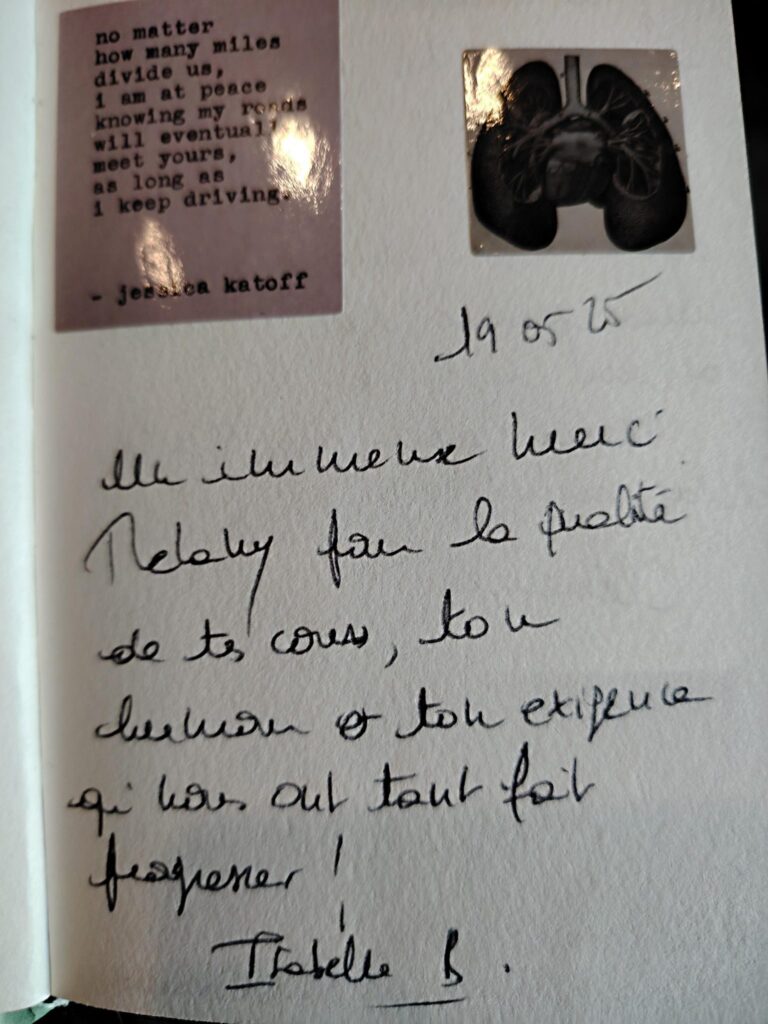 no matter
how many miles
divide us,
i am at peace
knowing my roads
will eventually
meet yours,
as long as
i keep driving.
- jessica katoff
19 05 25
Un immense merci
Melany pour la qualité
de tes cours, ton
humour et ton exigence
qui nous ont tant fait
progresser !
Isabelle B.